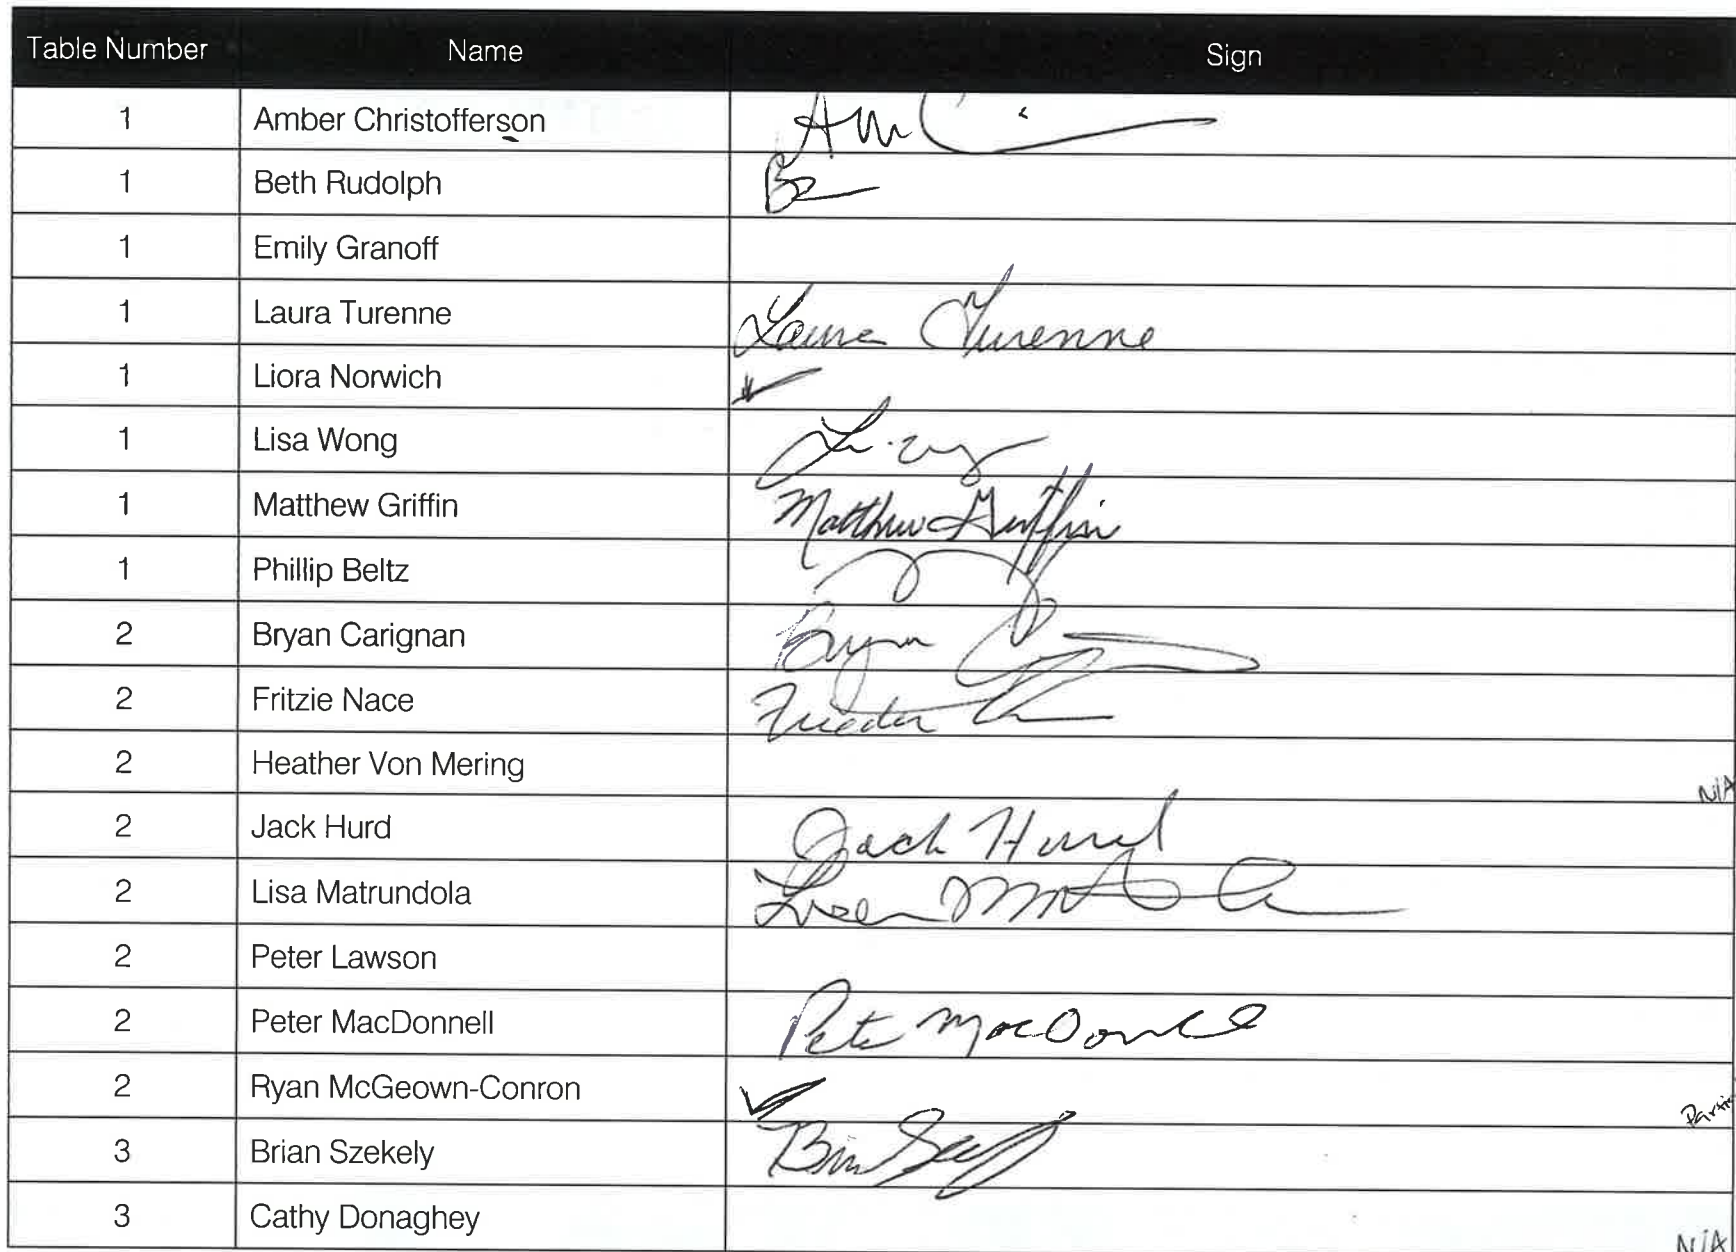 Table Number Name Sign
1 Amber Christofferson
1 Beth Rudolph
1 Emily Granoff
1 Laura Turenne Laura Turenne
1 Liora Norwich
1 Lisa Wong
1 Matthew Griffin Matthew Griffin
1 Phillip Beltz
2 Bryan Carignan Bryan
2 Fritzie Nace
2 Heather Von Mering N/A
2 Jack Hurd Jack Hurd
2 Lisa Matrundola Lisa
2 Peter Lawson
2 Peter MacDonnell Pete MacDonnell
2 Ryan McGeown-Conron Partic
3 Brian Szekely
3 Cathy Donaghey N/A